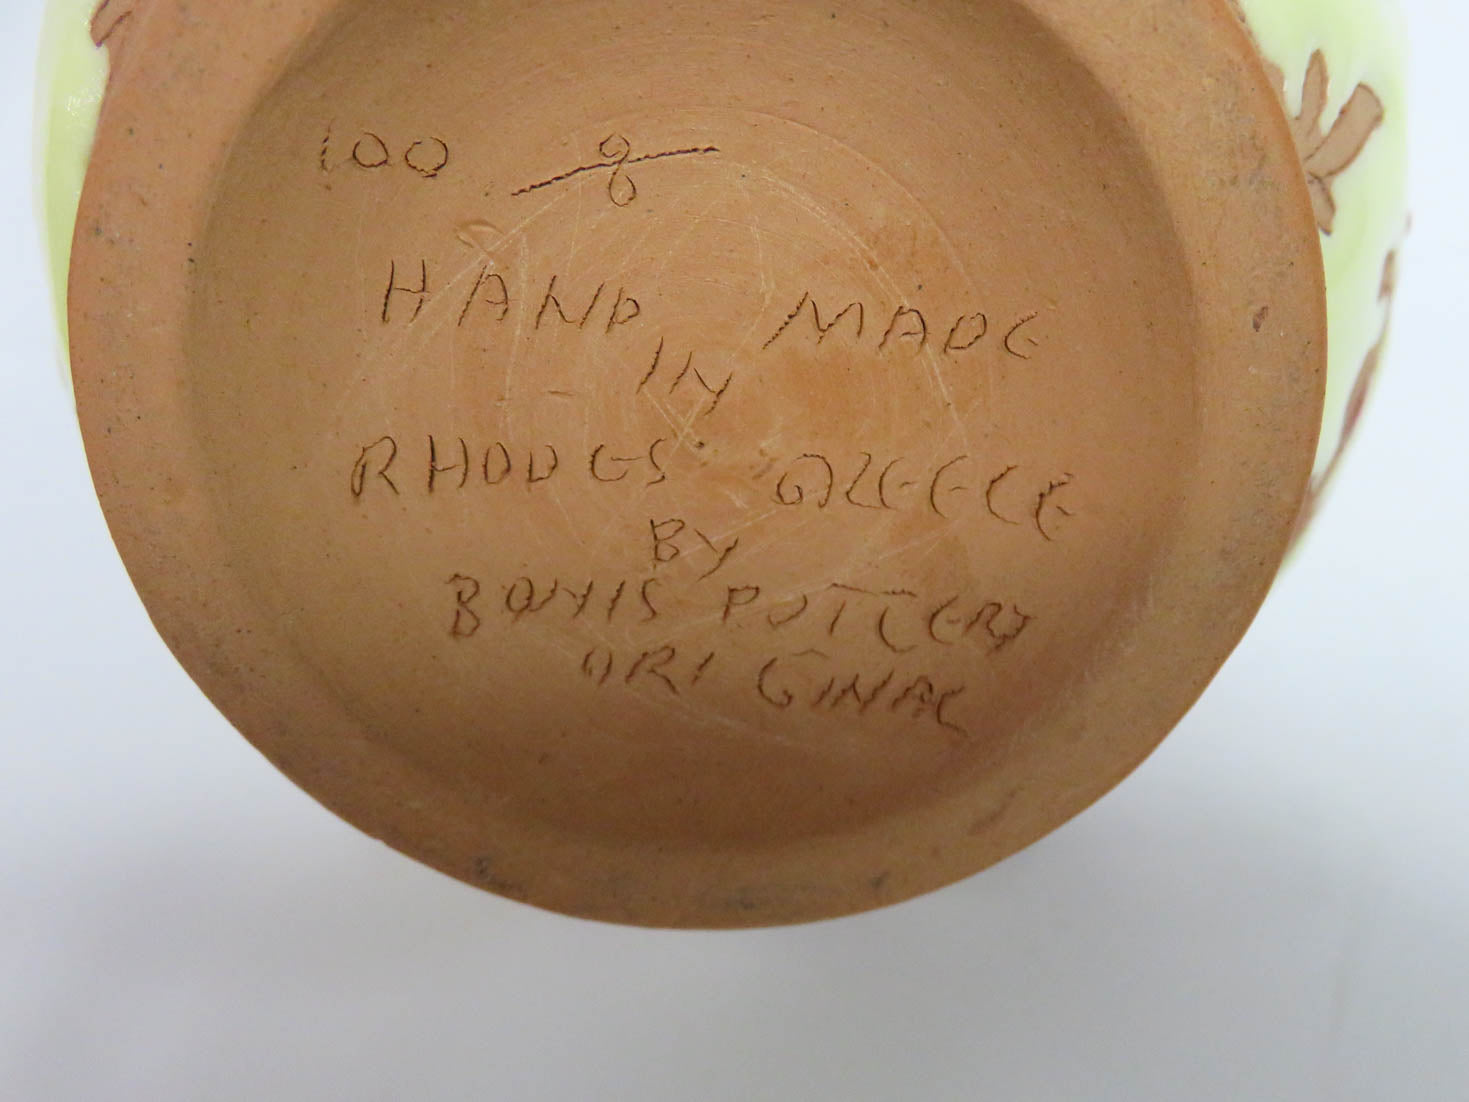 100 8
HAND MADE
IN
RHODES GREECE
BY
BONIS POTTERY
ORIGINAL